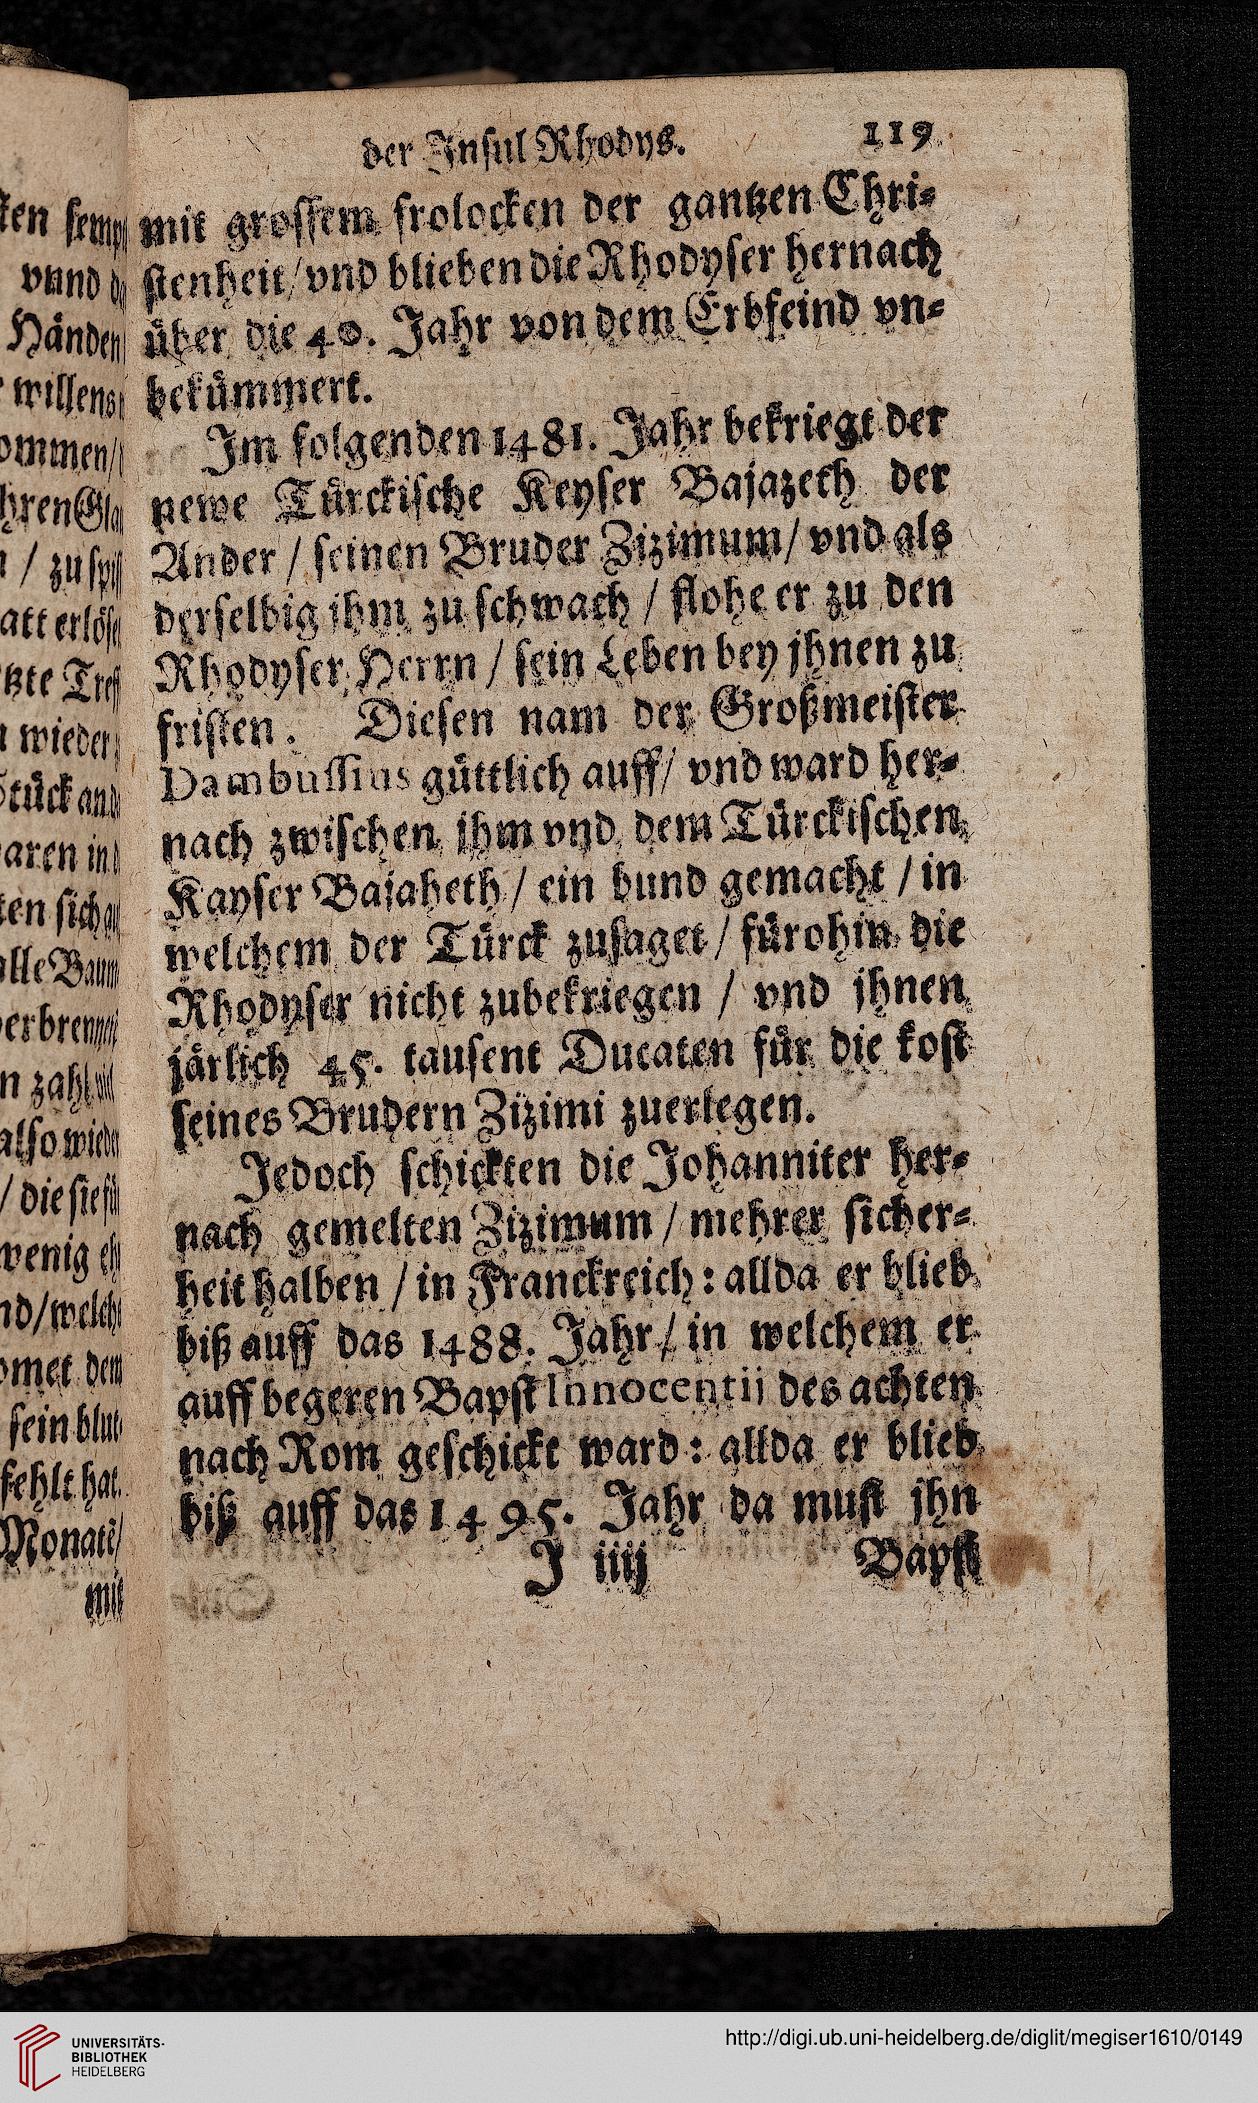 der Insul Rhodys. 119
mit grossem frolocken der gantzen Chri-
stenheit / vnd blieben die Rhodyser hernach
über die 40. Jahr von dem Erbfeind vn-
bekümmert.
Im folgenden 1481. Jahr bekriegt der
newe Türckische Keyser Bajazeth der
Ander / seinen Bruder Zizimum / vnd als
derselbig ihm zu schwach / flohe er zu den
Rhodyser Herrn / sein Leben bey jhnen zu
fristen. Diesen nam der Großmeister
Dambussius güttlich auff / vnd ward her-
nach zwischen ihm vnd dem Türckischen
Kayser Baiaheth / ein bund gemacht / in
welchem der Türck zusaget / fürohin die
Rhodyser nicht zubekriegen / vnd jhnen
järlich 45. tausent Ducaten für die kost
seines Brudern Zizimi zuerlegen.
Jedoch schickten die Johanniter her-
nach gemelten Zizimum / mehrer sicher-
heit halben / in Franckreich : allda er blieb
biß auff das 1488. Jahr / in welchem er
auff begeren Bapst Innocentii des achten
nach Rom geschickt ward : allda er blieb
biß auff das 1495. Jahr da must jhn
J iiij Bapst
vnnd
Händen
willens
wieder
Monatẽ/
mit
UNIVERSITÄTS-
BIBLIOTHEK
HEIDELBERG
http://digi.ub.uni-heidelberg.de/diglit/megiser1610/0149